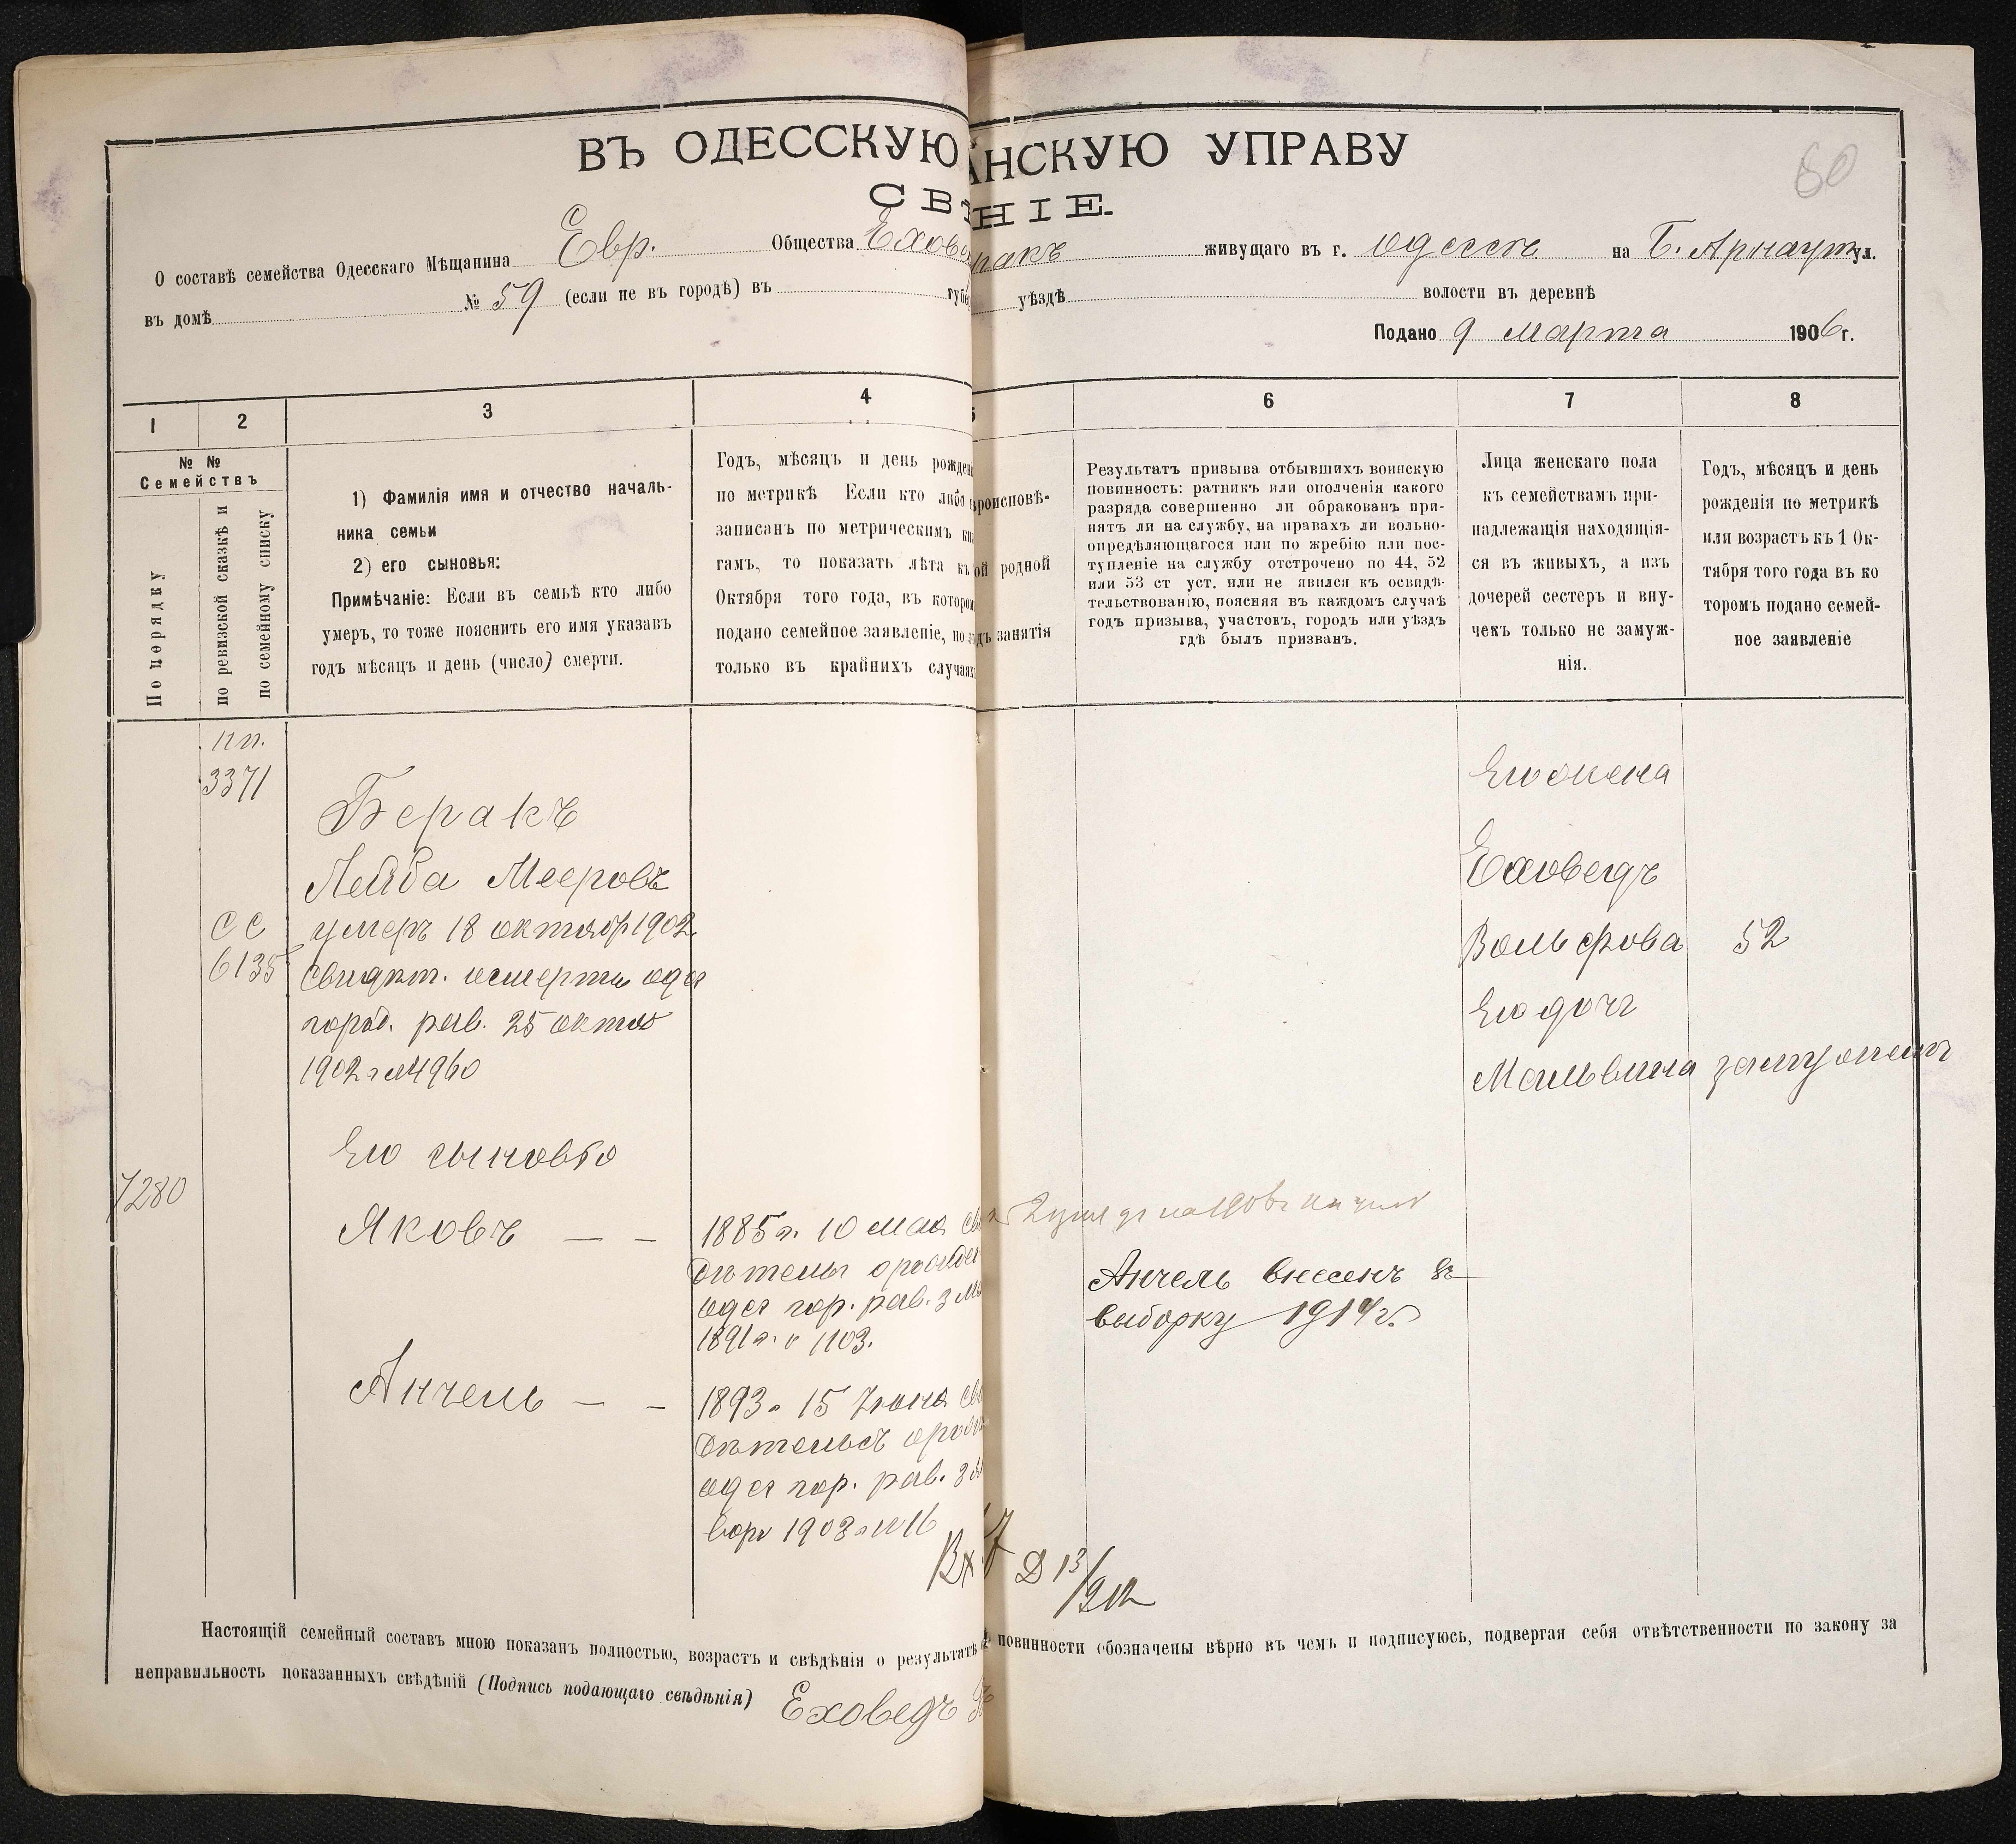 ВЪ ОДЕССКУЮ АНСКУЮ УПРАВУ
СВѢ НІЕ.
60
О составѣ семейства Одесскаго Мѣщанина Евр. Общества Ехове ракъ живущаго въ г. Одессѣ на Б. Арнаут ул.
въ домѣ № 59 (если не въ городѣ) въ губе уѣздѣ волости въ деревнѣ
Подано 9 Марта 1906 г.
1 2 3 4 5 6 7 8
№ №
Семействъ
По порядку
по ревизской сказкѣ и
по семейному списку
1) Фамилія имя и отчество началь-
ника семьи
2) его сыновья:
Примѣчаніе: Если въ семьѣ кто либо
умеръ, то тоже пояснить его имя указавъ
годъ мѣсяцъ и день (число) смерти.
Годъ, мѣсяцъ и день рожден
по метрикѣ Если кто либо
записанъ по метрическимъ кн
гамъ, то показать лѣта къ
Октября того года, въ которо
подано семейное заявленіе, но
только въ крайнихъ случаяхъ
роисповѣ-
ой родной
дъ занятія
Результатъ призыва отбывшихъ воинскую
повинность: ратникъ или ополченія какого
разряда совершенно ли обракованъ при-
нятъ ли на службу, на правахъ ли вольно-
опредѣляющагося или по жребію или пос-
тупленіе на службу отсрочено по 44, 52
или 53 ст уст. или не явился къ освидѣ-
тельствованію, поясняя въ каждомъ случаѣ
годъ призыва, участокъ, городъ или уѣздъ
гдѣ былъ призванъ.
Лица женскаго пола
къ семействамъ при-
надлежащія находящія-
ся въ живыхъ, а изъ
дочерей сестеръ и вну-
чекъ только не замуж-
нія.
Годъ, мѣсяцъ и день
рожденія по метрикѣ
или возрастъ къ 1 Ок-
тября того года въ ко
торомъ подано семей-
ное заявленіе
3371
Беракъ
Лейба Мееровъ
умеръ 18 октябр 1902
сс
6135
свидѣт. о смерти одес
город. рав. 25 октяб
1902 г № 4960
Его сыновья
7280
Яковъ — —
1885 г. 10 мая св
дѣтель о рожден
одес гор. рав. 3 м
1891 г. № 1103.
Анчель — —
1893 г 15 Іюня св
дѣтельст о рож
одес гор. рав. 3 ян
варя 1903 г № 16
Анчель внесенъ въ
выборку 1914 г.
Его жена
Еховедъ
Вольфова 52
Его дочь
Мальвина замужемъ
Вх Д 13/
Настоящій семейный составъ мною показанъ полностью, возрастъ и свѣдѣнія о результатѣ повинности обозначены вѣрно въ чемъ и подписуюсь, подвергая себя отвѣтственности по закону за
неправильность показанныхъ свѣдѣній (Подпись подающаго свѣдѣнія) Еховедъ